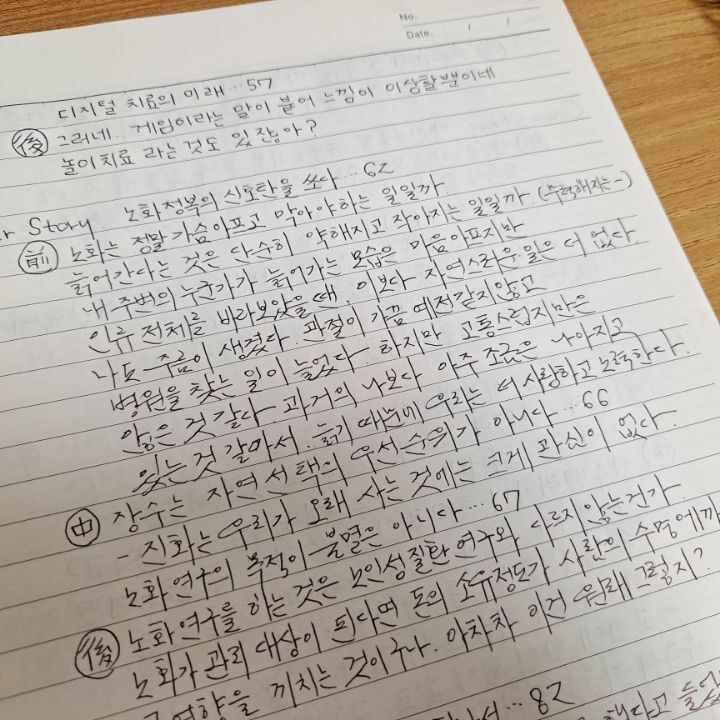 No.
Date. / /
디지털 치료의 미래…57
後 그러네.. 게임이라는 말이 붙어 느낌이 이상할뿐이네.
놀이치료 라는 것도 있잖아?
Story. 노화정복의 신호탄을 쏘다…62
前 노화는 정말 가슴아프고 막아야하는 일일까.
늙어간다는 것은 단순히 약해지고 작아지는 일일까. (무력해지는-)
내 주변의 누군가가 늙어가는 모습은 마음아프지만
인류 전체를 바라보았을때, 이보다 자연스러운 일은 더 없다.
나도 주름이 생겼다. 관절이 가끔 예전같지않고
병원을 찾는 일이 늘었다. 하지만 고통스럽지만은
않은 것 같다. 과거의 나보다 아주 조금은 나아지고
있는 것 같아서. 늙기 때문에 우리는 더 사랑하고 노력한다.
中 장수는 자연선택의 우선순위가 아니다…66
- 진화는 우리가 오래 사는 것에는 크게 관심이 없다.
노화연구의 목적이 불멸은 아니다…67
後 노화연구를 하는 것은 노인성질환 연구와 다르지않는건가.
노화가 관리 대상이 된다면 돈의 소유정도가 사람의 수명에까
영향을 끼치는 것이구나. 아차차 이건 원래 그렇지?
…82
하다고 들었